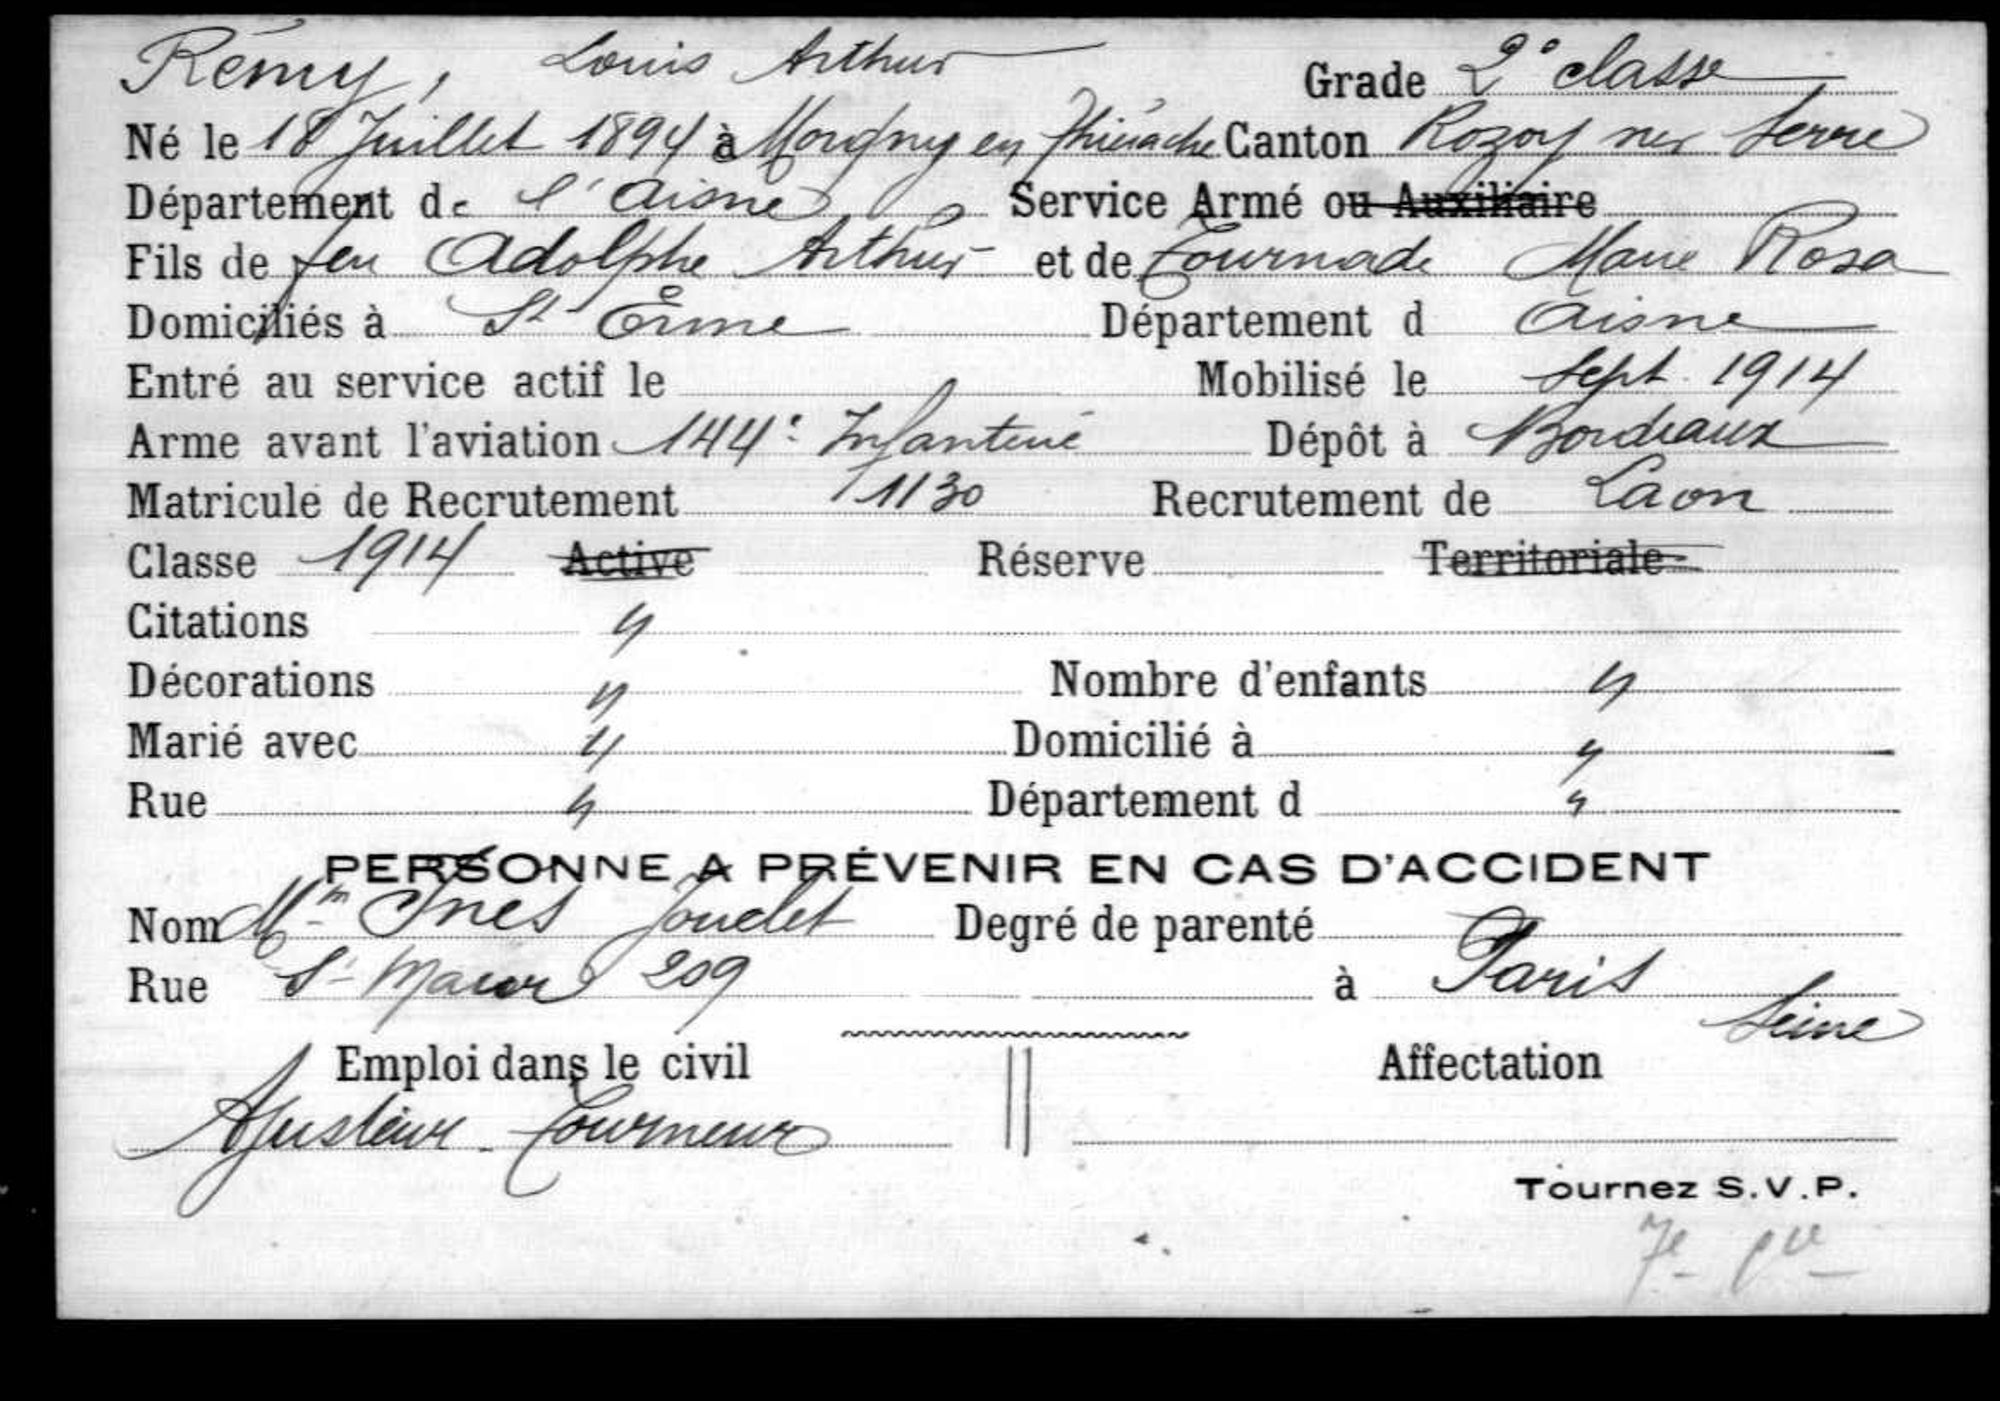 Rémy, Louis Arthur Grade 2e classe
Né le 18 Juillet 1894 à Morgny en Thiérache Canton Rozoy sur Serre
Département de l'Aisne Service Armé ou Auxiliaire
Fils de feu Adolphe Arthur et de Tournade Marie Rosa
Domiciliés à St Erme Département d Aisne
Entré au service actif le Mobilisé le Sept. 1914
Arme avant l'aviation 144e Infanterie Dépôt à Bordeaux
Matricule de Recrutement 1130 Recrutement de Laon
Classe 1914 Active Réserve Territoriale
Citations "
Décorations " Nombre d'enfants "
Marié avec " Domicilié à "
Rue " Département d "
PERSONNE A PRÉVENIR EN CAS D'ACCIDENT
Nom Mm Ines Jouelet Degré de parenté
Rue St Maur 209 à Paris
Seine
Emploi dans le civil Affectation
Ajusteur-Tourneur
Tournez S.V.P.
7e